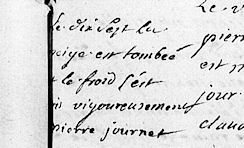 le dix sept la
neige est tombeé
le froid s'est
vigoureusement
pierre journet
Le
pierr
est
jour
claud